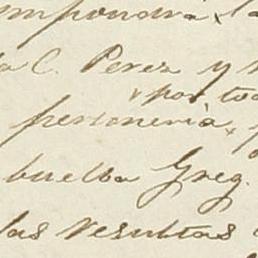 mpondra, la
a C. Perez y
por to
personeria,
buelba Greg.
las resultas